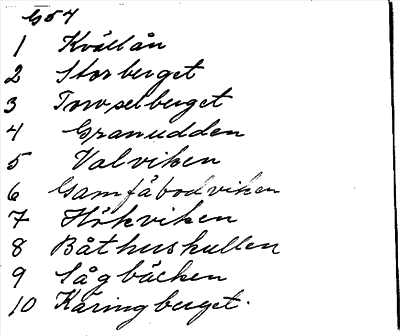 G 54
1 Kvällån
2 Storberget
3 Torvselberget
4 Granudden
5 Valviken
6 Gamfäbodviken
7 Hökviken
8 Båthuskullen
9 Sågbäcken
10 Käringberget.